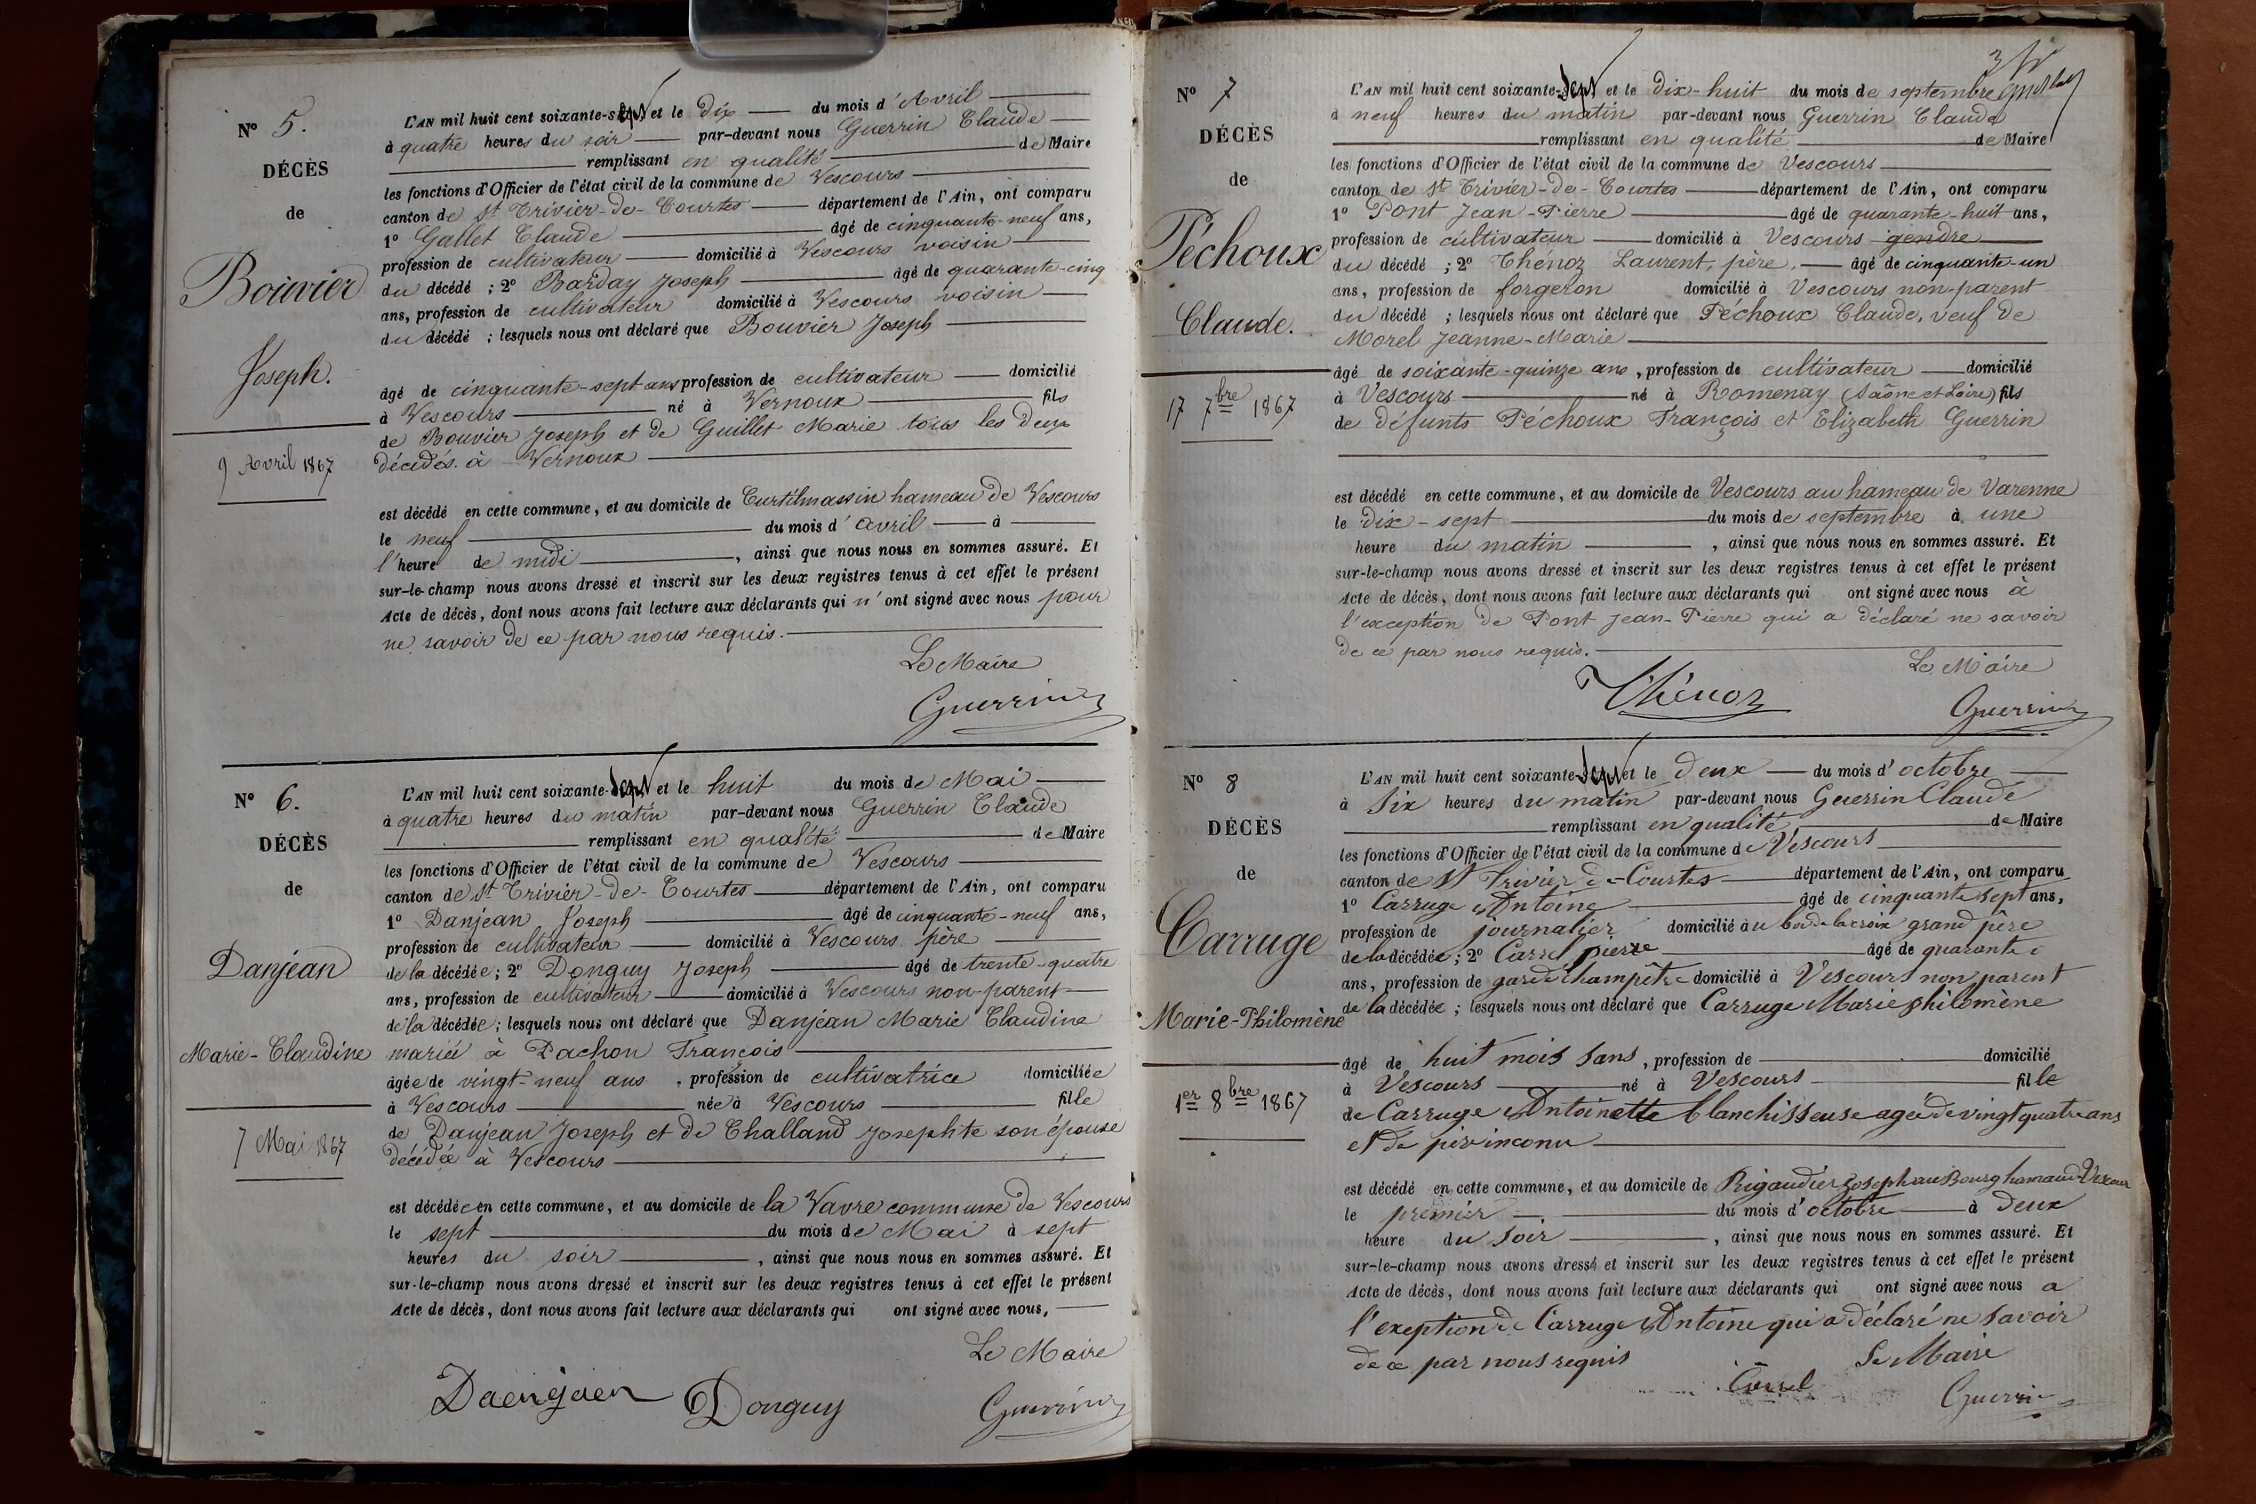 N° 5.
DÉCÈS
de
Bouvier
Joseph.
9 Avril 1867
L'AN mil huit cent soixante-sept et le dix du mois d'Avril
à quatre heures du soir par-devant nous Guerrin Claude
remplissant en qualité de Maire
les fonctions d'Officier de l'état civil de la commune de Vescours
canton de St Trivier-de-Courtes département de l'Ain, ont comparu
1° Gallet Claude âgé de cinquante-neuf ans,
profession de cultivateur domicilié à Vescours voisin
du décédé ; 2° Barday Joseph âgé de quarante-cinq
ans, profession de cultivateur domicilié à Vescours voisin
du décédé ; lesquels nous ont déclaré que Bouvier Joseph
âgé de cinquante-sept ans profession de cultivateur domicilié
à Vescours né à Vernoux fils
de Bouvier Joseph et de Guillet Marie tous les deux
décédés à Vernoux
est décédé en cette commune, et au domicile de Curtilmassin hameau de Vescours
le neuf du mois d'avril à
l'heure de midi , ainsi que nous nous en sommes assuré. Et
sur-le-champ nous avons dressé et inscrit sur les deux registres tenus à cet effet le présent
Acte de décès, dont nous avons fait lecture aux déclarants qui n'ont signé avec nous pour
ne savoir de ce par nous requis.
Le Maire
Guerrin
N° 6.
DÉCÈS
de
Danjean
Marie-Claudine
7 Mai 1867
L'AN mil huit cent soixante-sept et le huit du mois de Mai
à quatre heures du matin par-devant nous Guerrin Claude
remplissant en qualité de Maire
les fonctions d'Officier de l'état civil de la commune de Vescours
canton de St Trivier-de-Courtes département de l'Ain, ont comparu
1° Danjean Joseph âgé de cinquante-neuf ans,
profession de cultivateur domicilié à Vescours père
de la décédée ; 2° Donguy Joseph âgé de trente-quatre
ans, profession de cultivateur domicilié à Vescours non-parent
de la décédée ; lesquels nous ont déclaré que Danjean Marie Claudine
mariée à Pachon François
âgée de vingt-neuf ans , profession de cultivatrice domiciliée
à Vescours née à Vescours fille
de Danjean Joseph et de Challand Josephte son épouse
décédée à Vescours
est décédée en cette commune, et au domicile de la Vavre commune de Vescours
le sept du mois de Mai à sept
heures du soir , ainsi que nous nous en sommes assuré. Et
sur-le-champ nous avons dressé et inscrit sur les deux registres tenus à cet effet le présent
Acte de décès, dont nous avons fait lecture aux déclarants qui ont signé avec nous,
Le Maire
Daenjaen Donguy Guerrin
N° 7
DÉCÈS
de
Péchoux
Claude.
17 7bre 1867
L'AN mil huit cent soixante-sept et le dix-huit du mois de septembre
à neuf heures du matin par-devant nous Guerrin Claude
remplissant en qualité de Maire
les fonctions d'Officier de l'état civil de la commune de Vescours
canton de St Trivier-de-Courtes département de l'Ain, ont comparu
1° Pont Jean-Pierre âgé de quarante-huit ans,
profession de cultivateur domicilié à Vescours gendre
du décédé ; 2° Thénoz Laurent, père, âgé de cinquante-un
ans, profession de forgeron domicilié à Vescours non-parent
du décédé ; lesquels nous ont déclaré que Péchoux Claude, veuf de
Morel Jeanne-Marie
âgé de soixante-quinze ans , profession de cultivateur domicilié
à Vescours né à Romenay (Saône et Loire) fils
de défunts Péchoux François et Elizabeth Guerrin
est décédé en cette commune, et au domicile de Vescours au hameau de Varenne
le dix-sept du mois de septembre à une
heure du matin , ainsi que nous nous en sommes assuré. Et
sur-le-champ nous avons dressé et inscrit sur les deux registres tenus à cet effet le présent
Acte de décès, dont nous avons fait lecture aux déclarants qui ont signé avec nous à
l'exception de Pont Jean-Pierre qui a déclaré ne savoir
de ce par nous requis.
Le Maire
Thénoz Guerrin
N° 8
DÉCÈS
de
Carruge
Marie-Philomène
1er 8bre 1867
L'AN mil huit cent soixante-sept et le deux du mois d'octobre
à six heures du matin par-devant nous Guerrin Claude
remplissant en qualité de Maire
les fonctions d'Officier de l'état civil de la commune de Vescours
canton de St Trivier de-Courtes département de l'Ain, ont comparu
1° Carruge Antoine âgé de cinquante sept ans,
profession de journalier domicilié au bois de la croix grand père
de la décédée ; 2° Carrel pierre âgé de quarante
ans, profession de garde champêtre domicilié à Vescours non parent
de la décédée ; lesquels nous ont déclaré que Carruge Marie philomène
âgé de huit mois sans , profession de domicilié
à Vescours né à Vescours fille
de Carruge Antoinette blanchisseuse agée de vingt quatre ans
et de père inconu
est décédé en cette commune, et au domicile de Rigaudier Joseph au Bourg hamau de Vescour
le premier du mois d'octobre à deux
heure du soir , ainsi que nous nous en sommes assuré. Et
sur-le-champ nous avons dressé et inscrit sur les deux registres tenus à cet effet le présent
Acte de décès, dont nous avons fait lecture aux déclarants qui ont signé avec nous a
l'exeption de Carruge Antoine qui a déclaré ne savoir
de ce par nous requis
Le Maire
Carrel Guerrin